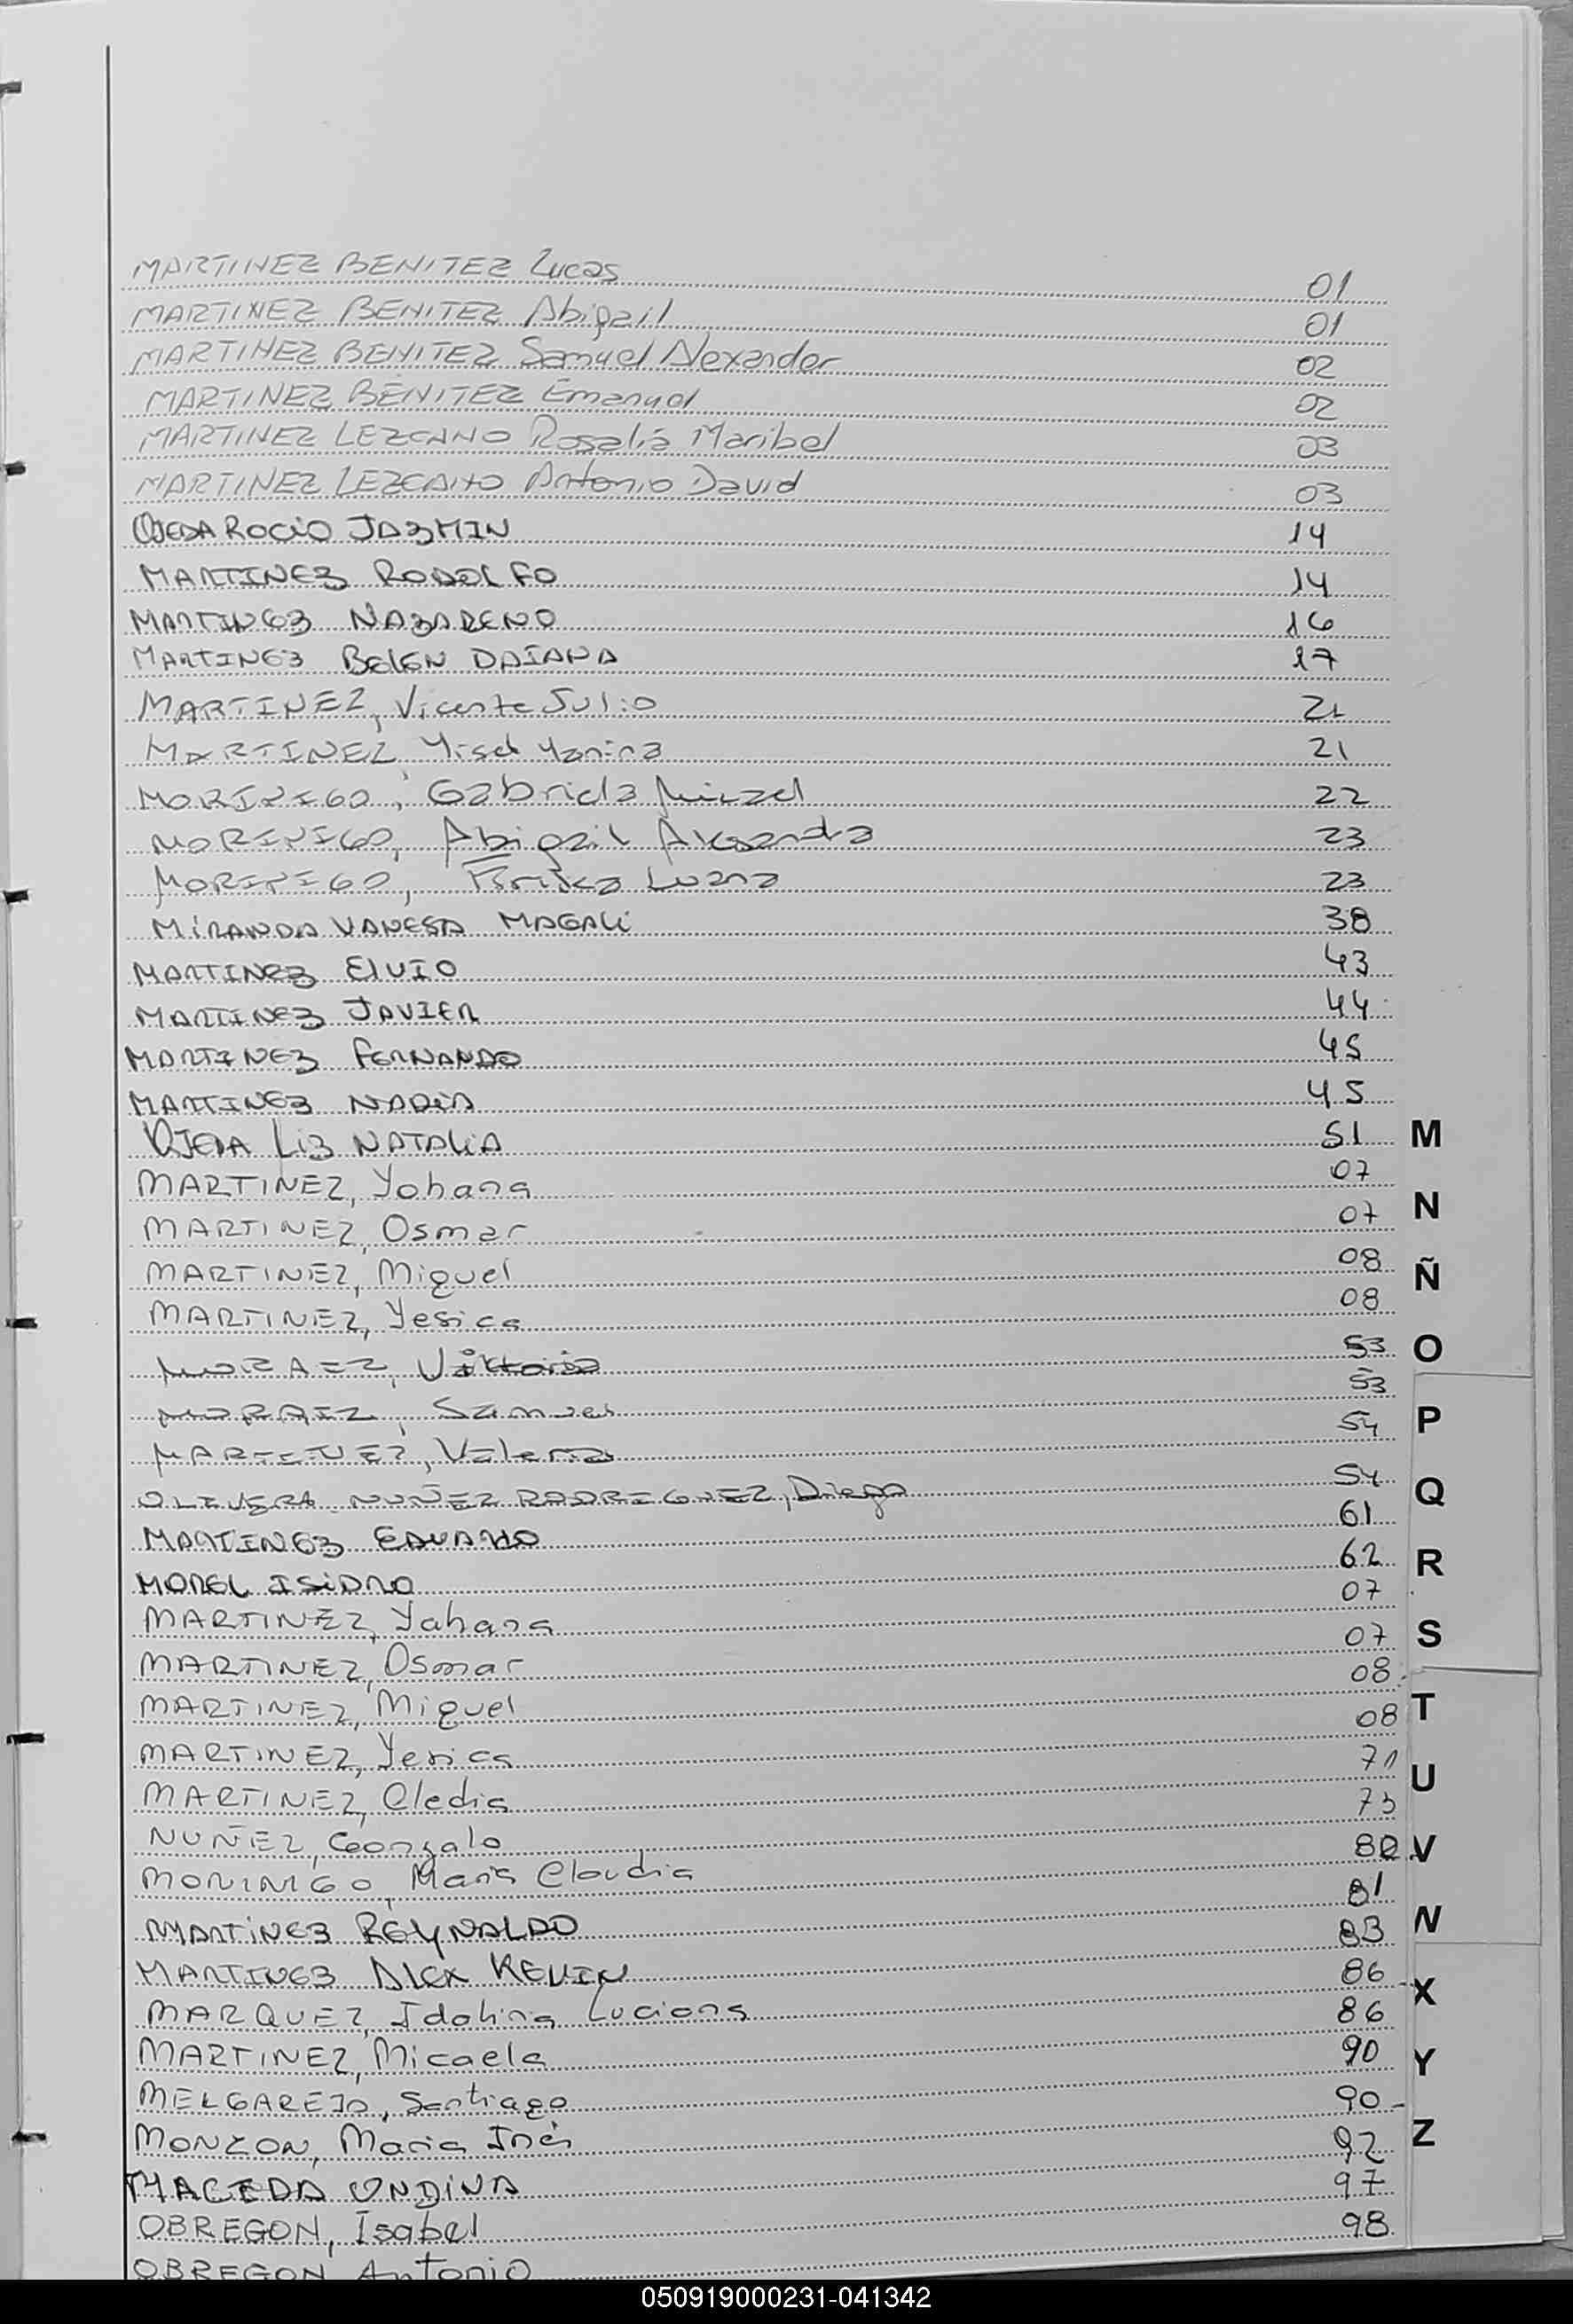 MARTINEZ BENITEZ Lucas 01
MARTINEZ BENITEZ Abigail 01
MARTINEZ BENITEZ Samuel Alexander 02
MARTINEZ BENITEZ Emanuel 02
MARTINEZ LEZCANO Rosalia Maribel 03
MARTINEZ LEZCANO Antonio David 03
OJEDA ROCIO JAZMIN 14
MARTINEZ RODOLFO 14
MARTINEZ NAZARENO 16
MARTINEZ BELEN DAIANA 17
MARTINEZ, Vicente Julio 21
MARTINEZ, Yisel Yanina 21
MORINIGO, Gabriela 22
MORINIGO, Abigail 23
MORINIGO, Luana 23
MIRANDA VANESA MAGALI 38
MARTINEZ ELVIO 43
MARTINEZ JAVIER 44
MARTINEZ FERNANDO 45
MARTINEZ NADIA 45
OJEDA LIZ NATALIA 51
MARTINEZ, Yohana 07
MARTINEZ, Osmar 07
MARTINEZ, Miguel 08
MARTINEZ, Yesica 08
MORAEZ, Viktoria 53
MORAEZ, Samuel 53
MARTINEZ, Valeria 54
OLIVERA NUÑEZ RODRIGUEZ, Diego 54
MARTINEZ EDUARDO 61
MOREL ISIDRO 62
MARTINEZ, Yahana 07
MARTINEZ, Osmar 07
MARTINEZ, Miguel 08
MARTINEZ, Yesica 08
MARTINEZ, Cledia 71
NUÑEZ, Gonzalo 73
MORINIGO, Maria Claudia 80
MARTINEZ REYNALDO 81
MARTINEZ ALEX KEVIN 83
MARQUEZ, Idalina Luciana 86
MARTINEZ, Micaela 86
MELGAREJO, Santiago 90
MONZON, Maria Inés 90
MACEDA ONDINA 92
OBREGON, Isabel 97
OBREGON Antonio 98
M
N
Ñ
O
P
Q
R
S
T
U
V
W
X
Y
Z
050919000231-041342